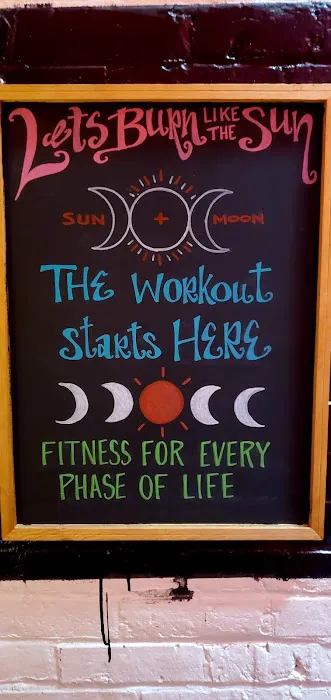 Lets Burn LIKE THE Sun
SUN + MOON
THE WORKOUT
STARTS HERE
FITNESS FOR EVERY
PHASE OF LIFE